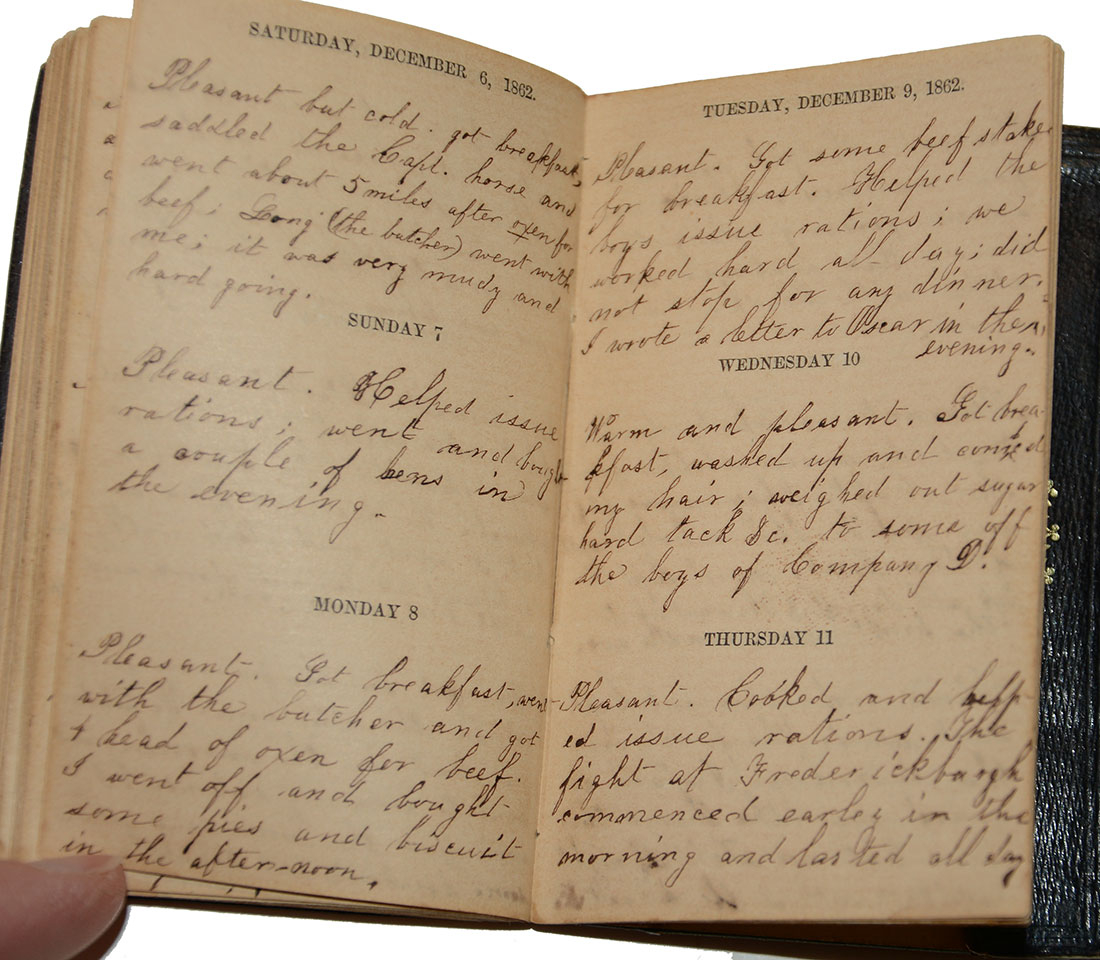 SATURDAY, DECEMBER 6, 1862.
Pleasant but cold. got breakfast,
saddled the Capt. horse and
went about 5 miles after oxen for
beef; Long (the butcher) went with
me; it was very mudy and
hard going.
SUNDAY 7
Pleasant. Helped issue
rations; went and bough
a couple of hens in
the evening.
MONDAY 8
Pleasant. Got breakfast, went
with the butcher and got
head of oxen for beef.
I went off and bought
some pies and biscuit
in the after-noon.
TUESDAY, DECEMBER 9, 1862.
Pleasant. Got some beef stake
for breakfast. Helped the
boys issue rations; we
worked hard all day; did
not stop for any dinner.
I wrote a letter to Oscar in the
evening.
WEDNESDAY 10
Warm and pleasant. Got brea-
kfast, washed up and
my hair; weighed out sugar
hard tack &c. to some off
the boys of Company D.
THURSDAY 11
Pleasant. Cooked and help-
ed issue rations. The
fight at Frederickburgh
commenced earley in the
morning and lasted all day